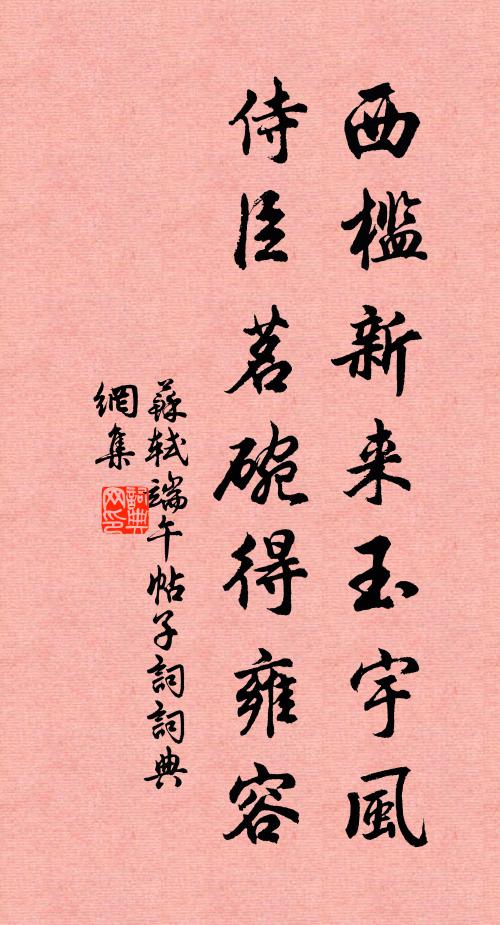 西檻新来玉宇風
侍臣茗碗得雍容
蘇軾端午帖子詞詞典
網集
詞典
网印